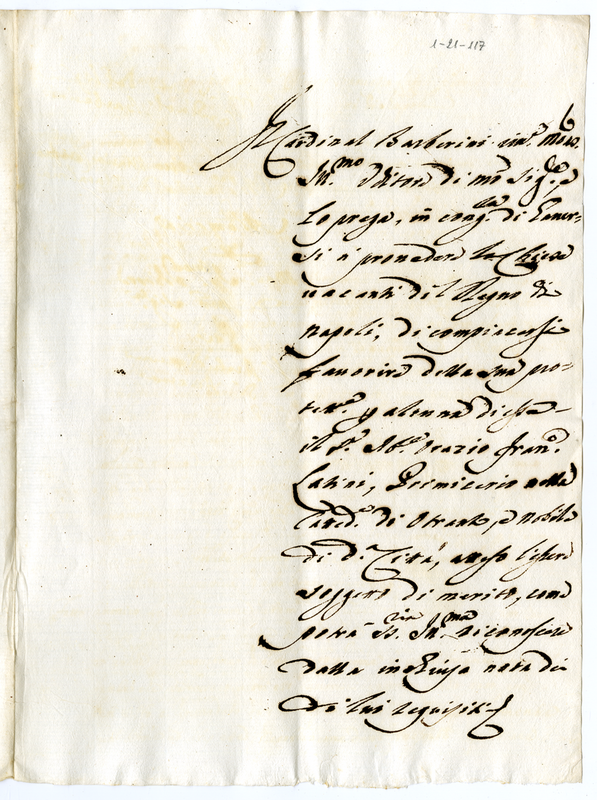 1-21-117
6
Il Cardinal Barberini
Ill.mo di
Lo prega, in cong.a di haver-
si à provedere le Chiese
vacanti del Regno di
Napoli, di compiacersi
favorire della sua pro-
tett.e p alcuna di esse
il S.r Ab.e Orazio Fran.o
Latini, Primicerio nella
Cated.e di Otranto, e nobile
di d.a Città, atteso l'essere
soggetto di merito, come
potrà V.S. Ill.ma riconoscere
dalla inchiusa nota dei
di lui requisiti